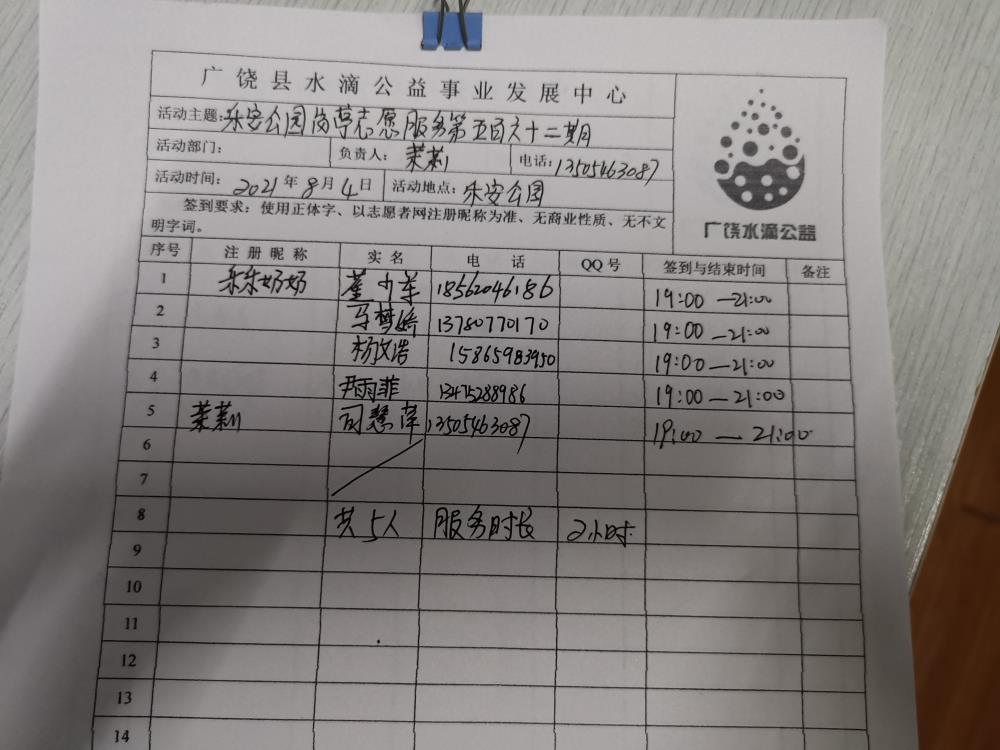 广饶县水滴公益事业发展中心
活动主题:乐安公园岗亭志愿服务第五百六十二期
活动部门: 负责人: 茉莉 电话:13505463087
活动时间: 2021年8月4日 活动地点:乐安公园
签到要求:使用正体字、以志愿者网注册昵称为准、无商业性质、无不文
明字词。
广饶水滴公益
序号 注册昵称 实名 电话 QQ号 签到与结束时间 备注
1 乐乐奶奶 18562046186 19:00—21:00
2 马梦婷 13780770170 19:00—21:00
3 杨文浩 15865983950 19:00—21:00
4 尹雨菲 13475288986 19:00—21:00
5 茉莉 司慧萍 13505463087 19:00—21:00
6
7
8 共5人 服务时长 2小时
9
10
11
12
13
14